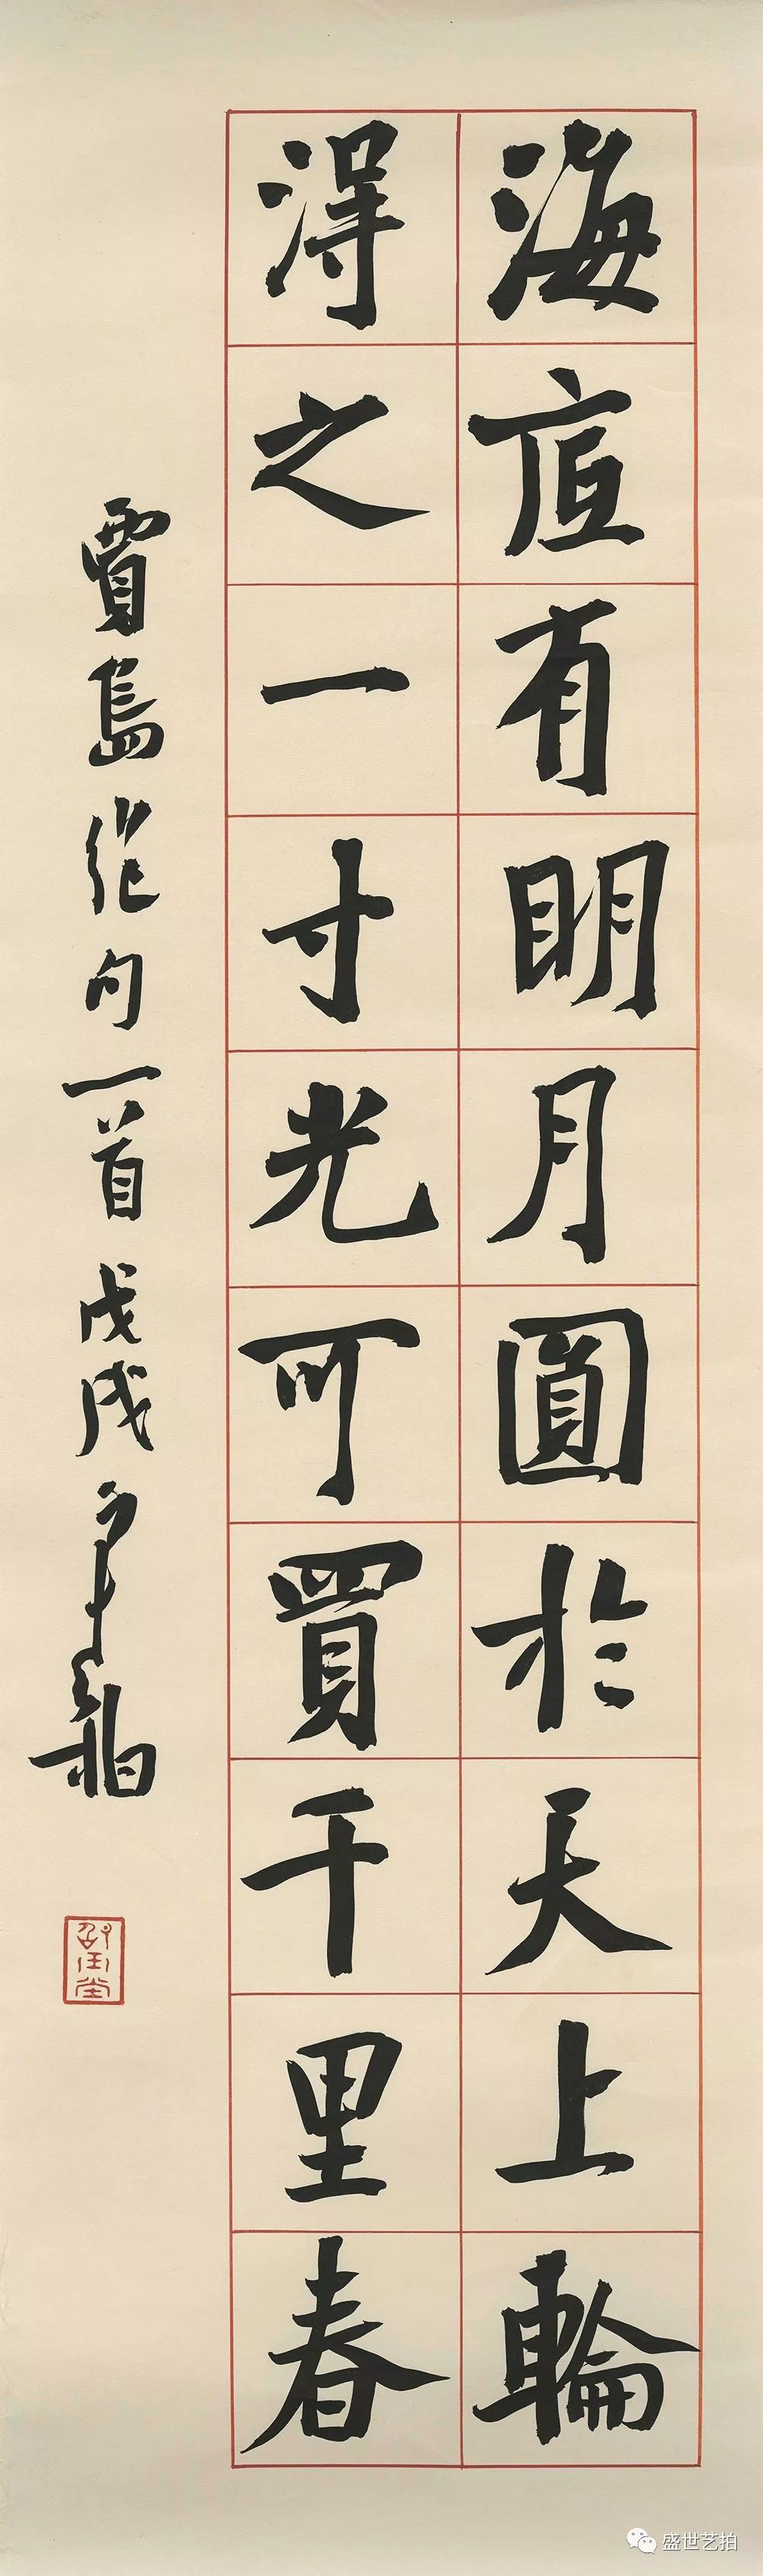 海底有明月圓於天上輪
得之一寸光可買千里春
賈島絕句一首戊戌
盛世艺拍